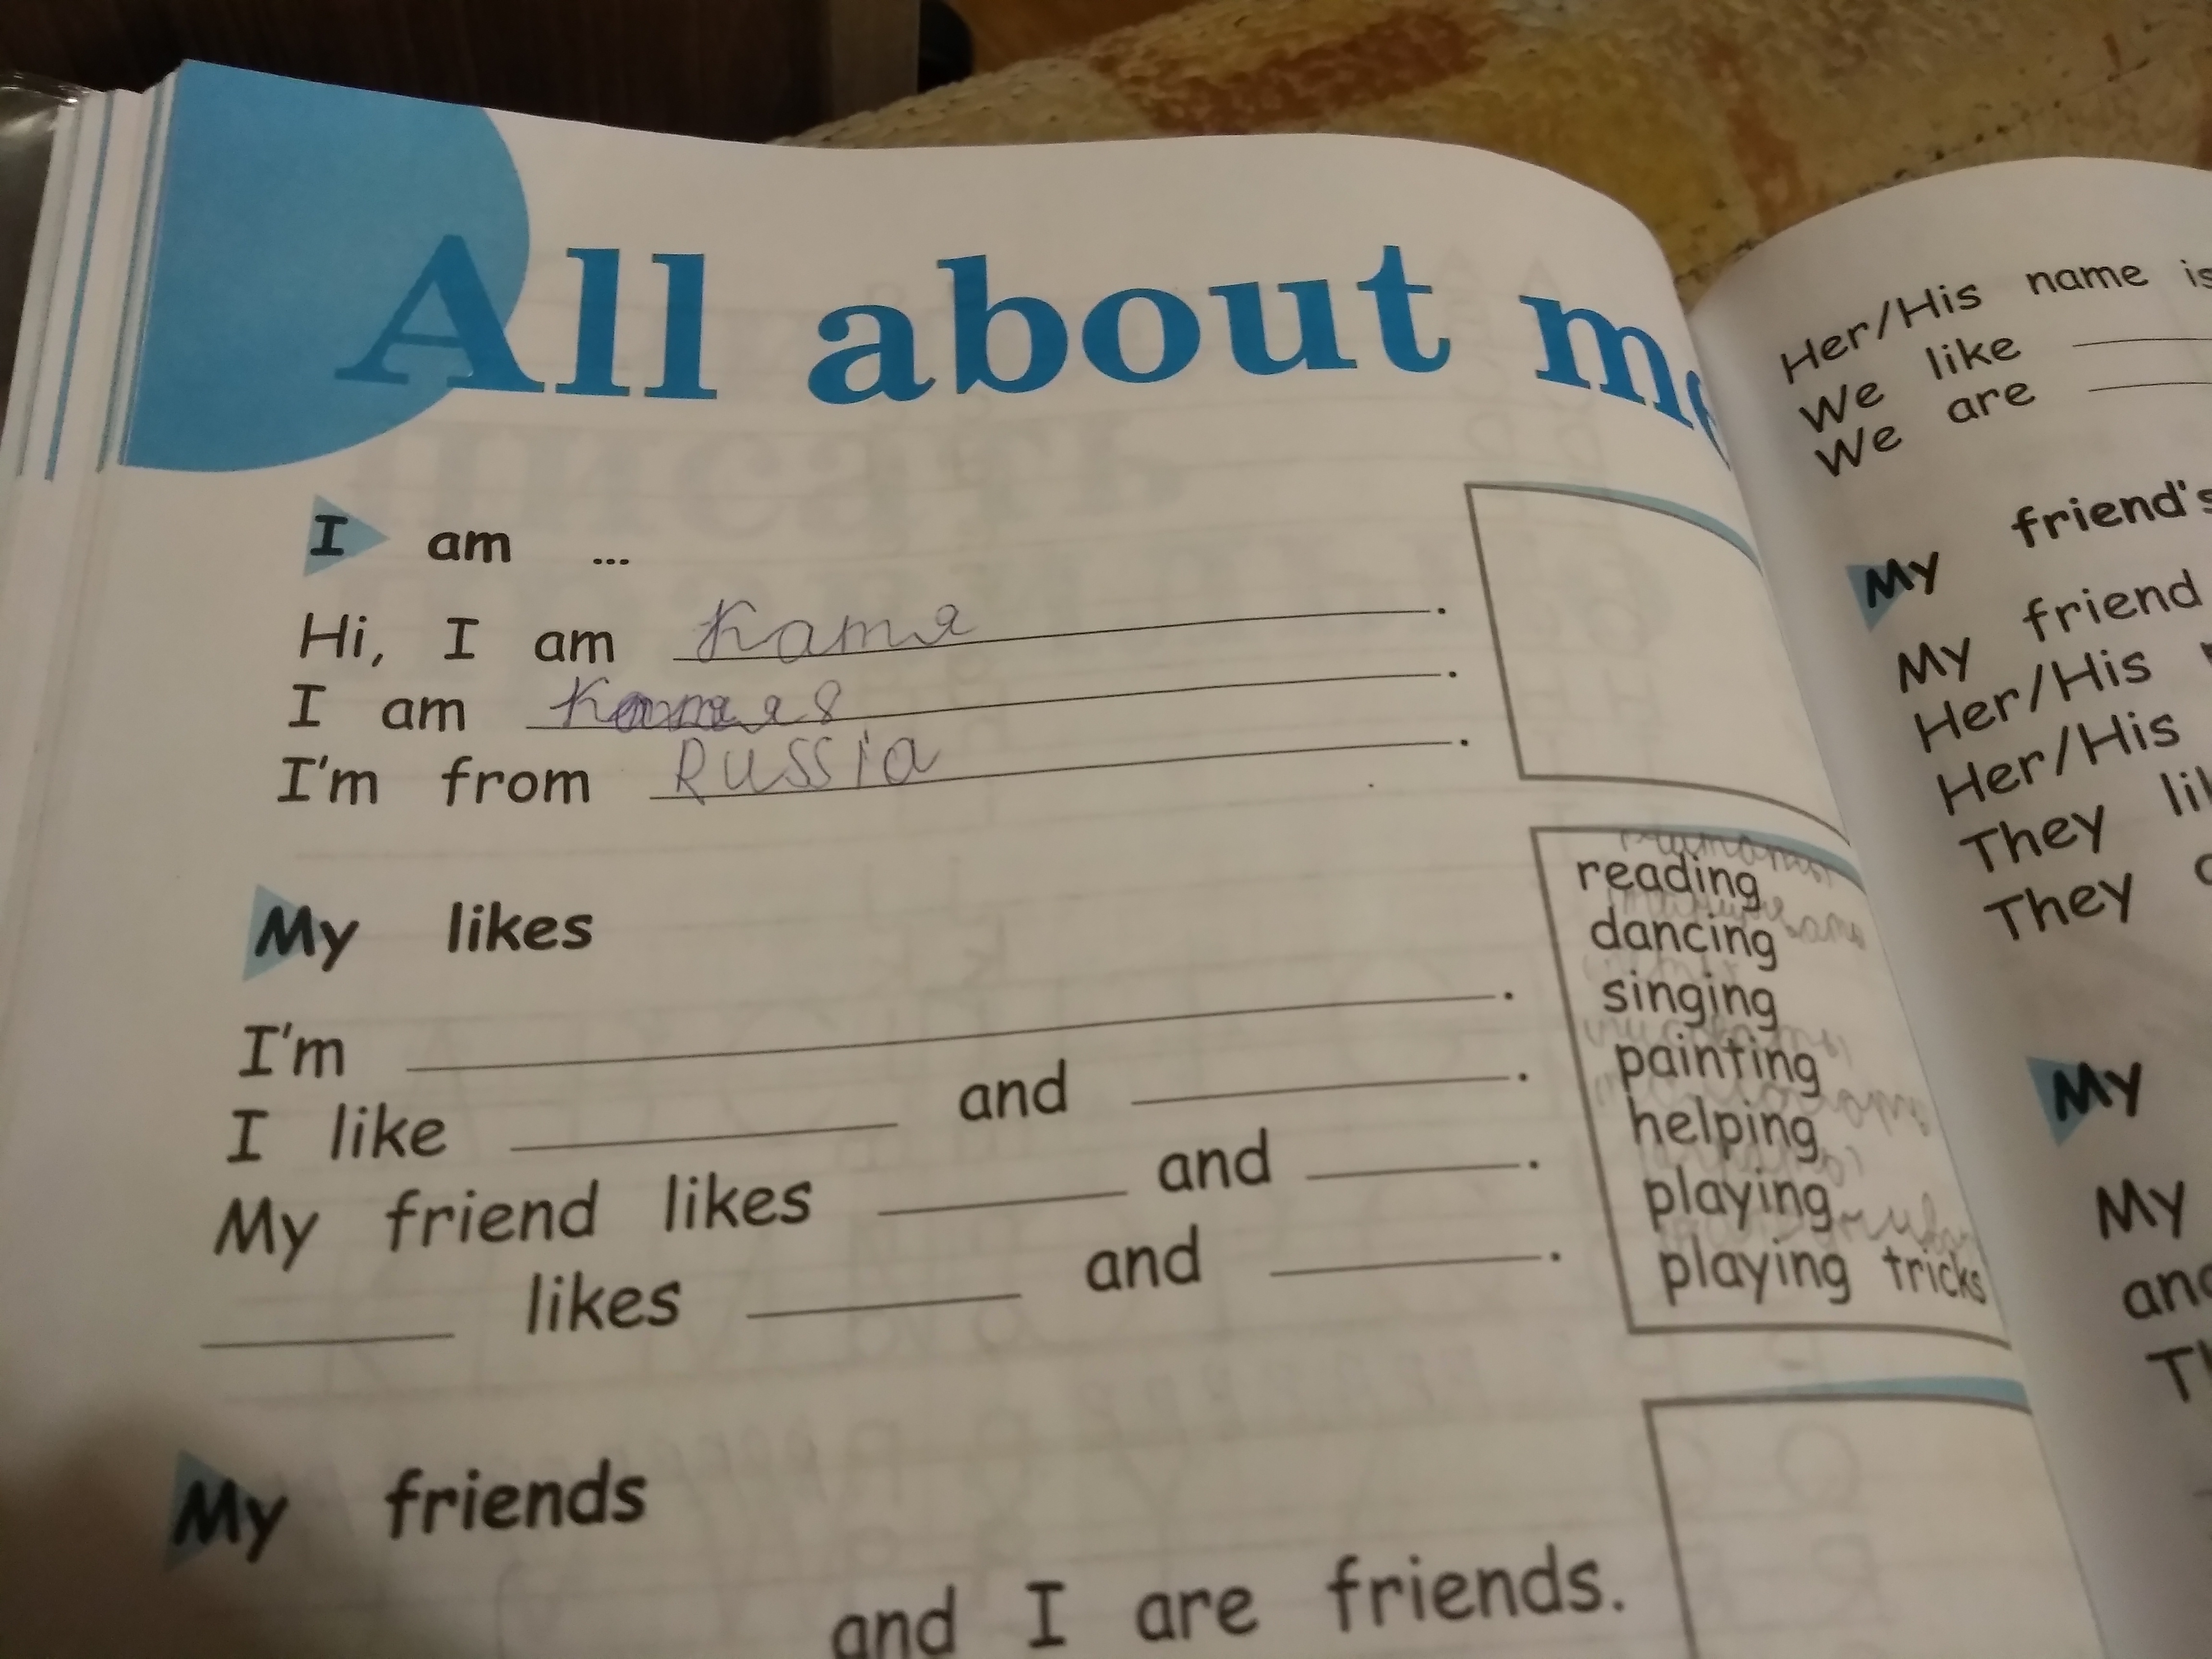 All about me
I am ...
Hi, I am Катя.
I am 8.
I'm from Russia.
My likes
I'm .
I like and .
My friend likes and .
likes and .
reading
dancing
singing
painting
helping
playing
playing tricks
My friends
and I are friends.
Her/His name is
We like
We are
My friend's
My friend
Her/His
Her/His
They
They
My
My